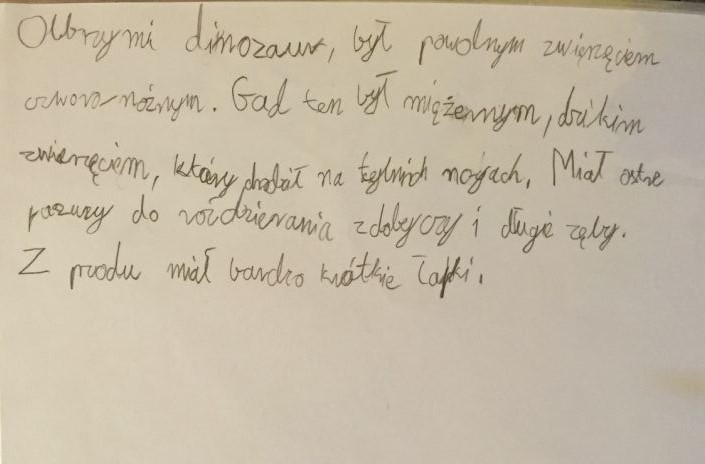 Olbrzymi dinozaur, był powolnym zwięrzęciem
czworo-nożnym. Gad ten był miężernym, dzikim
zwierzęciem, który chodził na tylnich nogach, Miał ostre
pazury do rozdzierania zdobyczy i długie zęby.
Z przodu miał bardzo krótkie łapki.